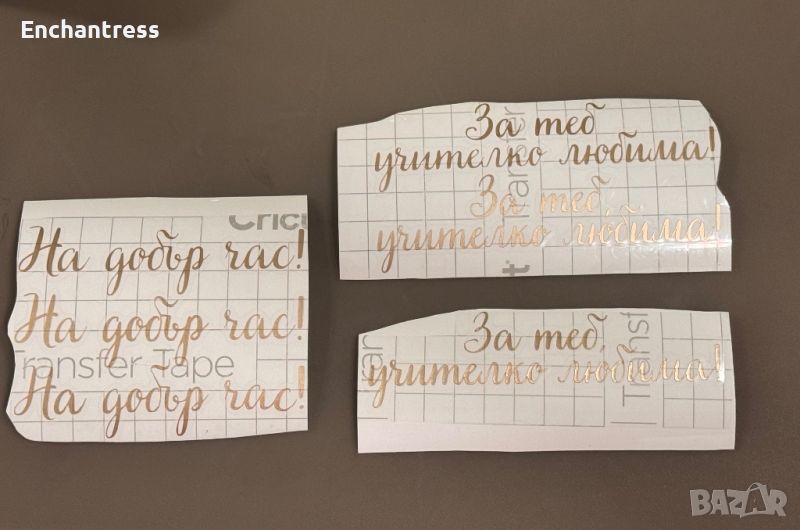 Enchantress
Cricu
На добър час!
На добър час!
Transfer Tape
На добър час!
За теб
учителко любима!
За теб,
учителко любима!
За теб,
учителко любима!
Transt
BAZAR